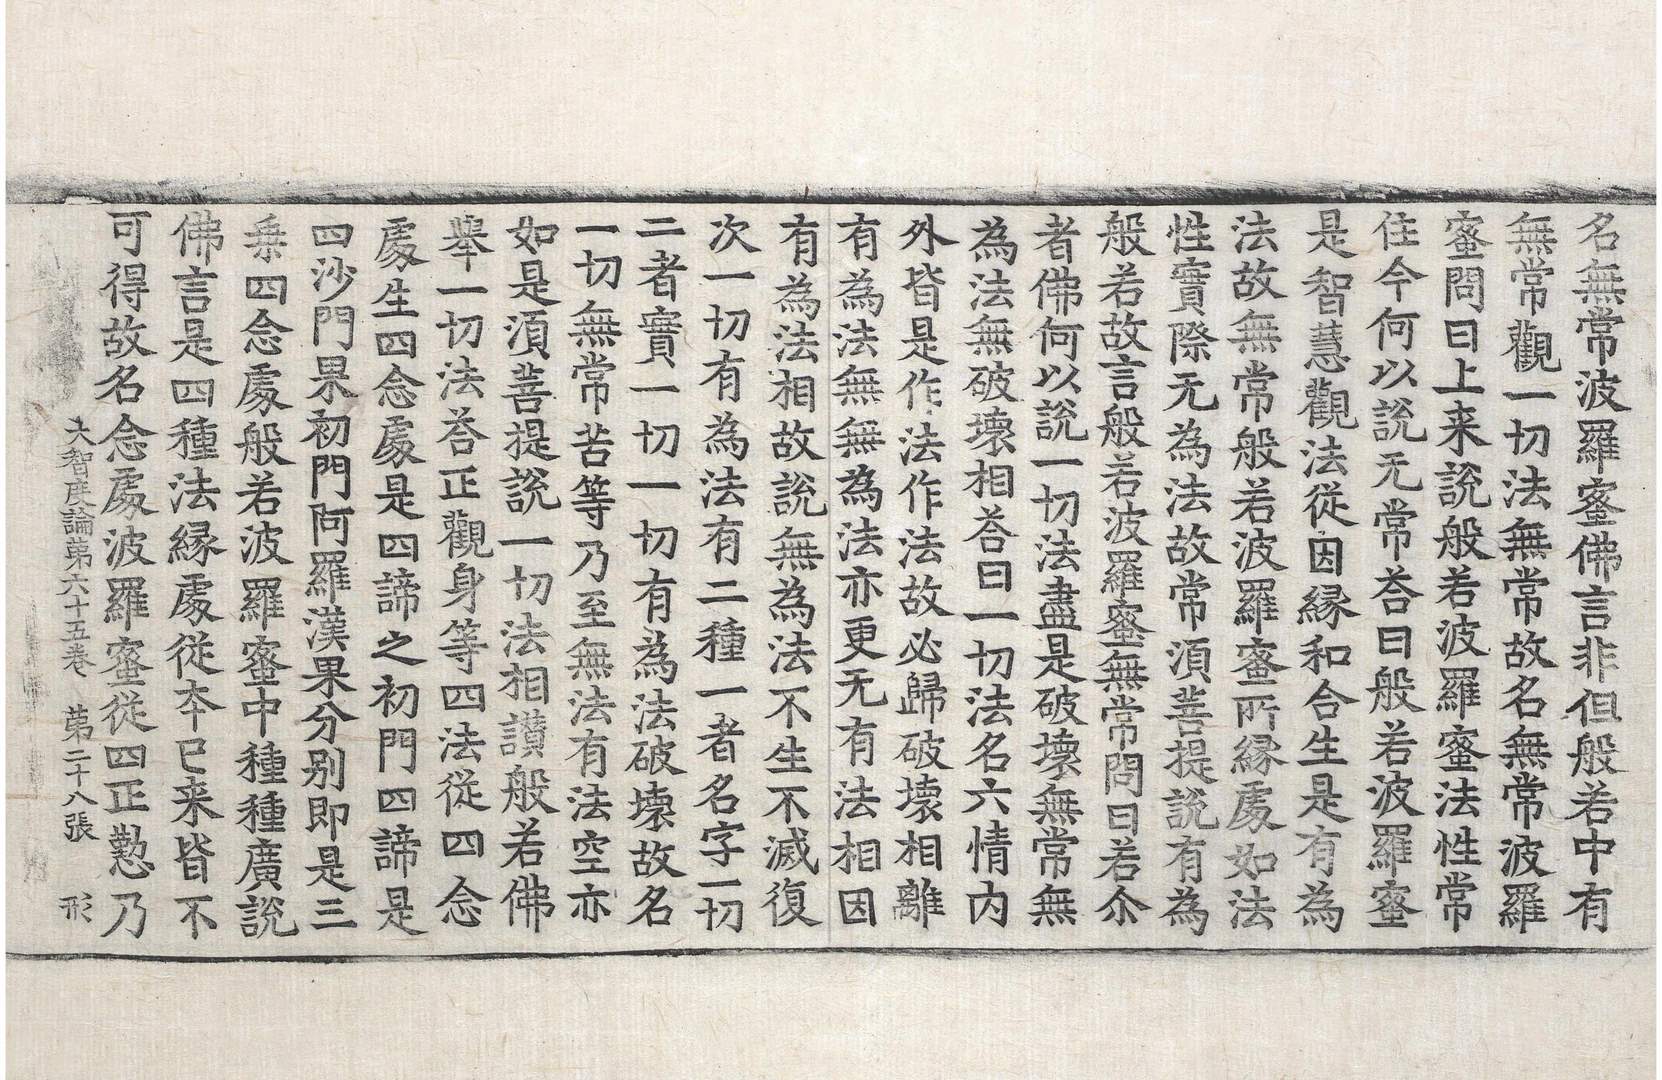 名無常波羅蜜佛言非但般若中有
無常觀一切法無常故名無常波羅
蜜問曰上来說般若波羅蜜法性常
住今何以說无常荅曰般若波羅蜜
是智慧觀法從因緣和合生是有為
法故無常般若波羅蜜所緣處如法
性實際无為法故常湏菩提說有為
般若故言般若波羅蜜無常問曰若尒
者佛何以說一切法盡是破壞無常無
為法無破壞相荅曰一切法名六情內
外皆是作法作法故必歸破壞相離
有為法無無為法亦更无有法相因
有為法相故說無為法不生不滅復
次一切有為法有二種一者名字一切
二者實一切一切有為法破壞故名
一切無常苦等乃至無法有法空亦
如是湏菩提說一切法相讃般若佛
舉一切法荅正觀身等四法從四念
處生四念處是四諦之初門四諦是
四沙門果初門阿羅漢果分別即是三
乗四念處般若波羅蜜中種種廣說
佛言是四種法緣處從夲已来皆不
可得故名念處波羅蜜從四正懃乃
大智度論第六十五卷 第二十八張 形